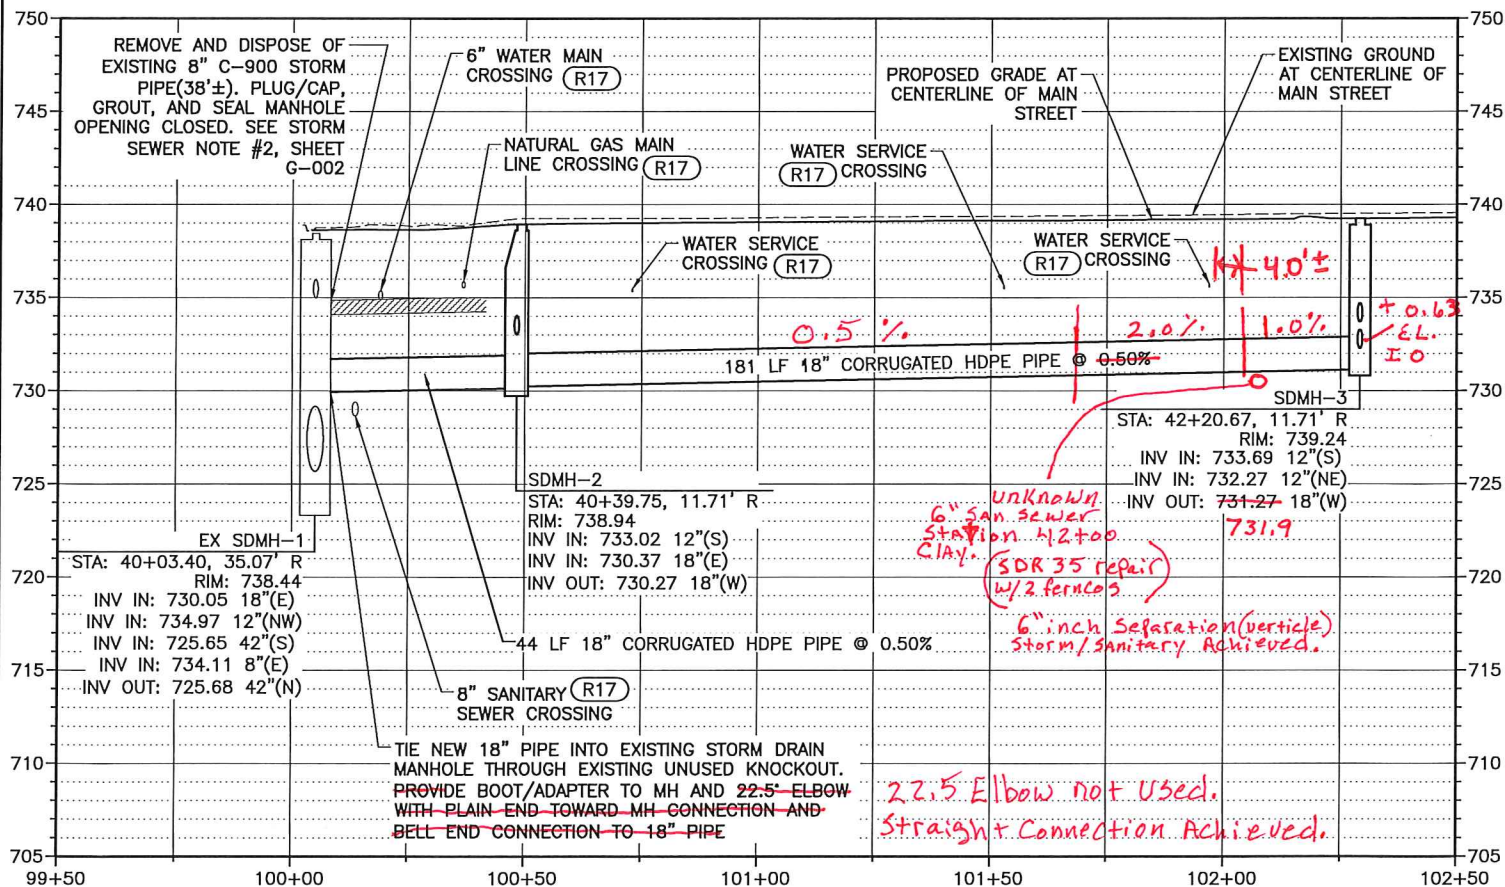 750
745
740
735
730
725
720
715
710
705
REMOVE AND DISPOSE OF
EXISTING 8" C-900 STORM
PIPE(38'±). PLUG/CAP,
GROUT, AND SEAL MANHOLE
OPENING CLOSED. SEE STORM
SEWER NOTE #2, SHEET
G-002
6" WATER MAIN
CROSSING R17
NATURAL GAS MAIN
LINE CROSSING R17
WATER SERVICE
CROSSING R17
WATER SERVICE
R17 CROSSING
PROPOSED GRADE AT
CENTERLINE OF MAIN
STREET
EXISTING GROUND
AT CENTERLINE OF
MAIN STREET
WATER SERVICE
R17 CROSSING
4.0'±
0.5 %
2.0%
1.0%
+ 0.63
EL.
IO
181 LF 18" CORRUGATED HDPE PIPE @ 0.50%
SDMH-3
STA: 42+20.67, 11.71' R
RIM: 739.24
INV IN: 733.69 12"(S)
INV IN: 732.27 12"(NE)
INV OUT: 731.27 18"(W)
731.9
SDMH-2
STA: 40+39.75, 11.71' R
RIM: 738.94
INV IN: 733.02 12"(S)
INV IN: 730.37 18"(E)
INV OUT: 730.27 18"(W)
EX SDMH-1
STA: 40+03.40, 35.07' R
RIM: 738.44
INV IN: 730.05 18"(E)
INV IN: 734.97 12"(NW)
INV IN: 725.65 42"(S)
INV IN: 734.11 8"(E)
INV OUT: 725.68 42"(N)
unknown
6" San Sewer
Station 42+00
Clay.
(SDR 35 repair
w/2 fernco s)
6" inch Separation (verticle)
Storm/Sanitary Achieved.
44 LF 18" CORRUGATED HDPE PIPE @ 0.50%
8" SANITARY R17
SEWER CROSSING
TIE NEW 18" PIPE INTO EXISTING STORM DRAIN
MANHOLE THROUGH EXISTING UNUSED KNOCKOUT.
PROVIDE BOOT/ADAPTER TO MH AND 22.5° ELBOW
WITH PLAIN END TOWARD MH CONNECTION AND
BELL END CONNECTION TO 18" PIPE
22.5 Elbow not Used.
Straight Connection Achieved.
750
745
740
735
730
725
720
715
710
705
99+50
100+00
100+50
101+00
101+50
102+00
102+50